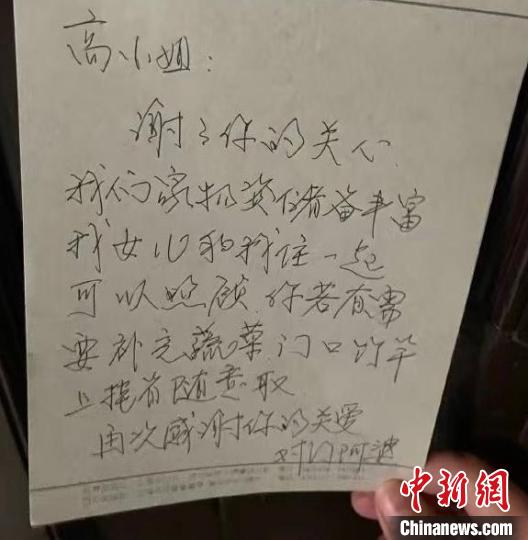 高小姐：
谢了你的关心、
我们家物资储备丰富
我女儿和我住一起
可以照顾．你若有需
要补充蔬菜．门口竹竿
上挂着随意取
再次感谢你的关爱
对门阿婆
中新网
Chinanews.com